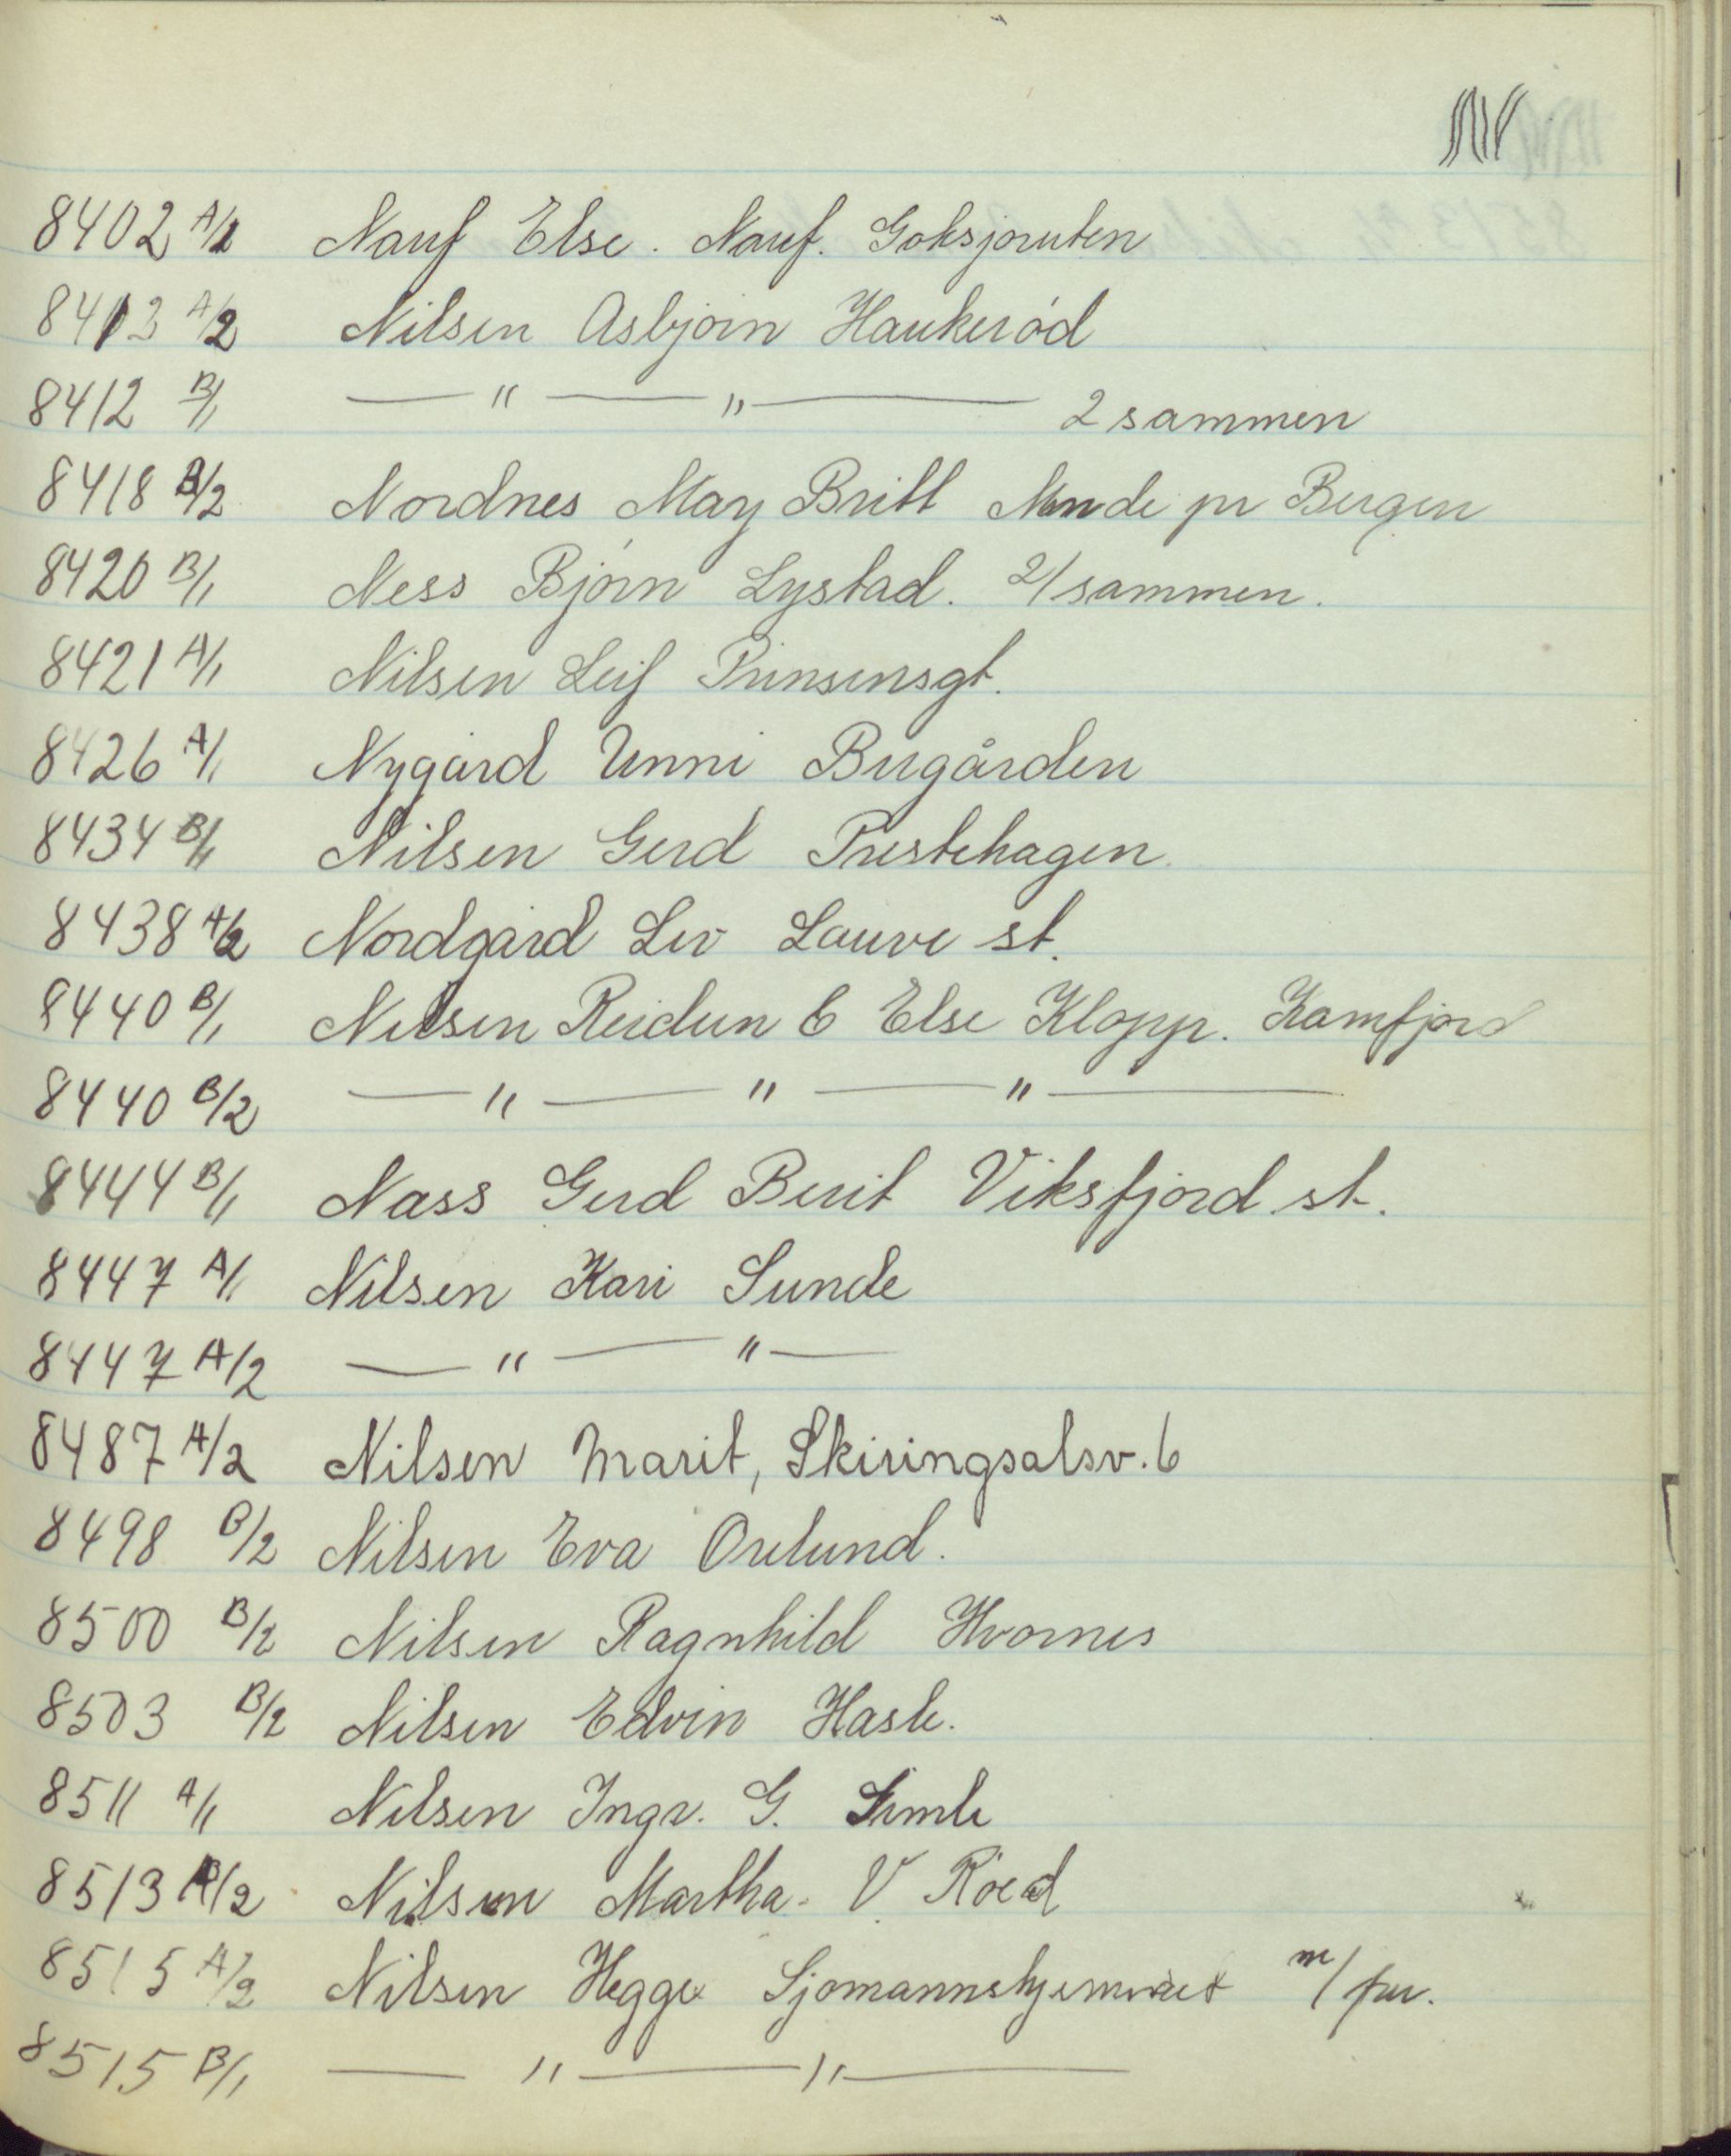 N
8402 A/1 Nauf Else. Nauf. Goksjoruten
8413 A/2 Nilsen Asbjørn Haukerød
8412 B/1 — " — " — 2 sammen
8418 B/2 Nordnes May Britt Minde pr Bergen
8420 B/1 Ness Bjørn Lystad. 2/sammen.
8421 A/1 Nilsen Leif Prinsensgt.
8426 A/1 Nygård Unni Bugården
8434 B/1 Nilsen Gerd Prestehagen
8438 A/2 Nordgård Liv Lauve st.
8440 B/1 Nilsen Reidun & Else Klopp. Kamfjord
8440 B/2 — " — " — " —
8444 B/1 Nass Gerd Berit Viksfjord st.
8447 A/1 Nilsen Kari Sunde
8447 A/2 — " — " —
8487 A/2 Nilsen Marit, Skiringsalsv. 6
8498 B/2 Nilsen Eva Orelund.
8500 B/2 Nilsen Ragnhild Hvornes
8503 B/2 Nilsen Edvin Hasle.
8511 A/1 Nilsen Ingr. G. Gimle
8513 B/2 Nilsen Martha. V. Røed
8515 A/2 Nilsen Hegge Sjomannshjemmet m/fru.
8515 B/1 — " — " —